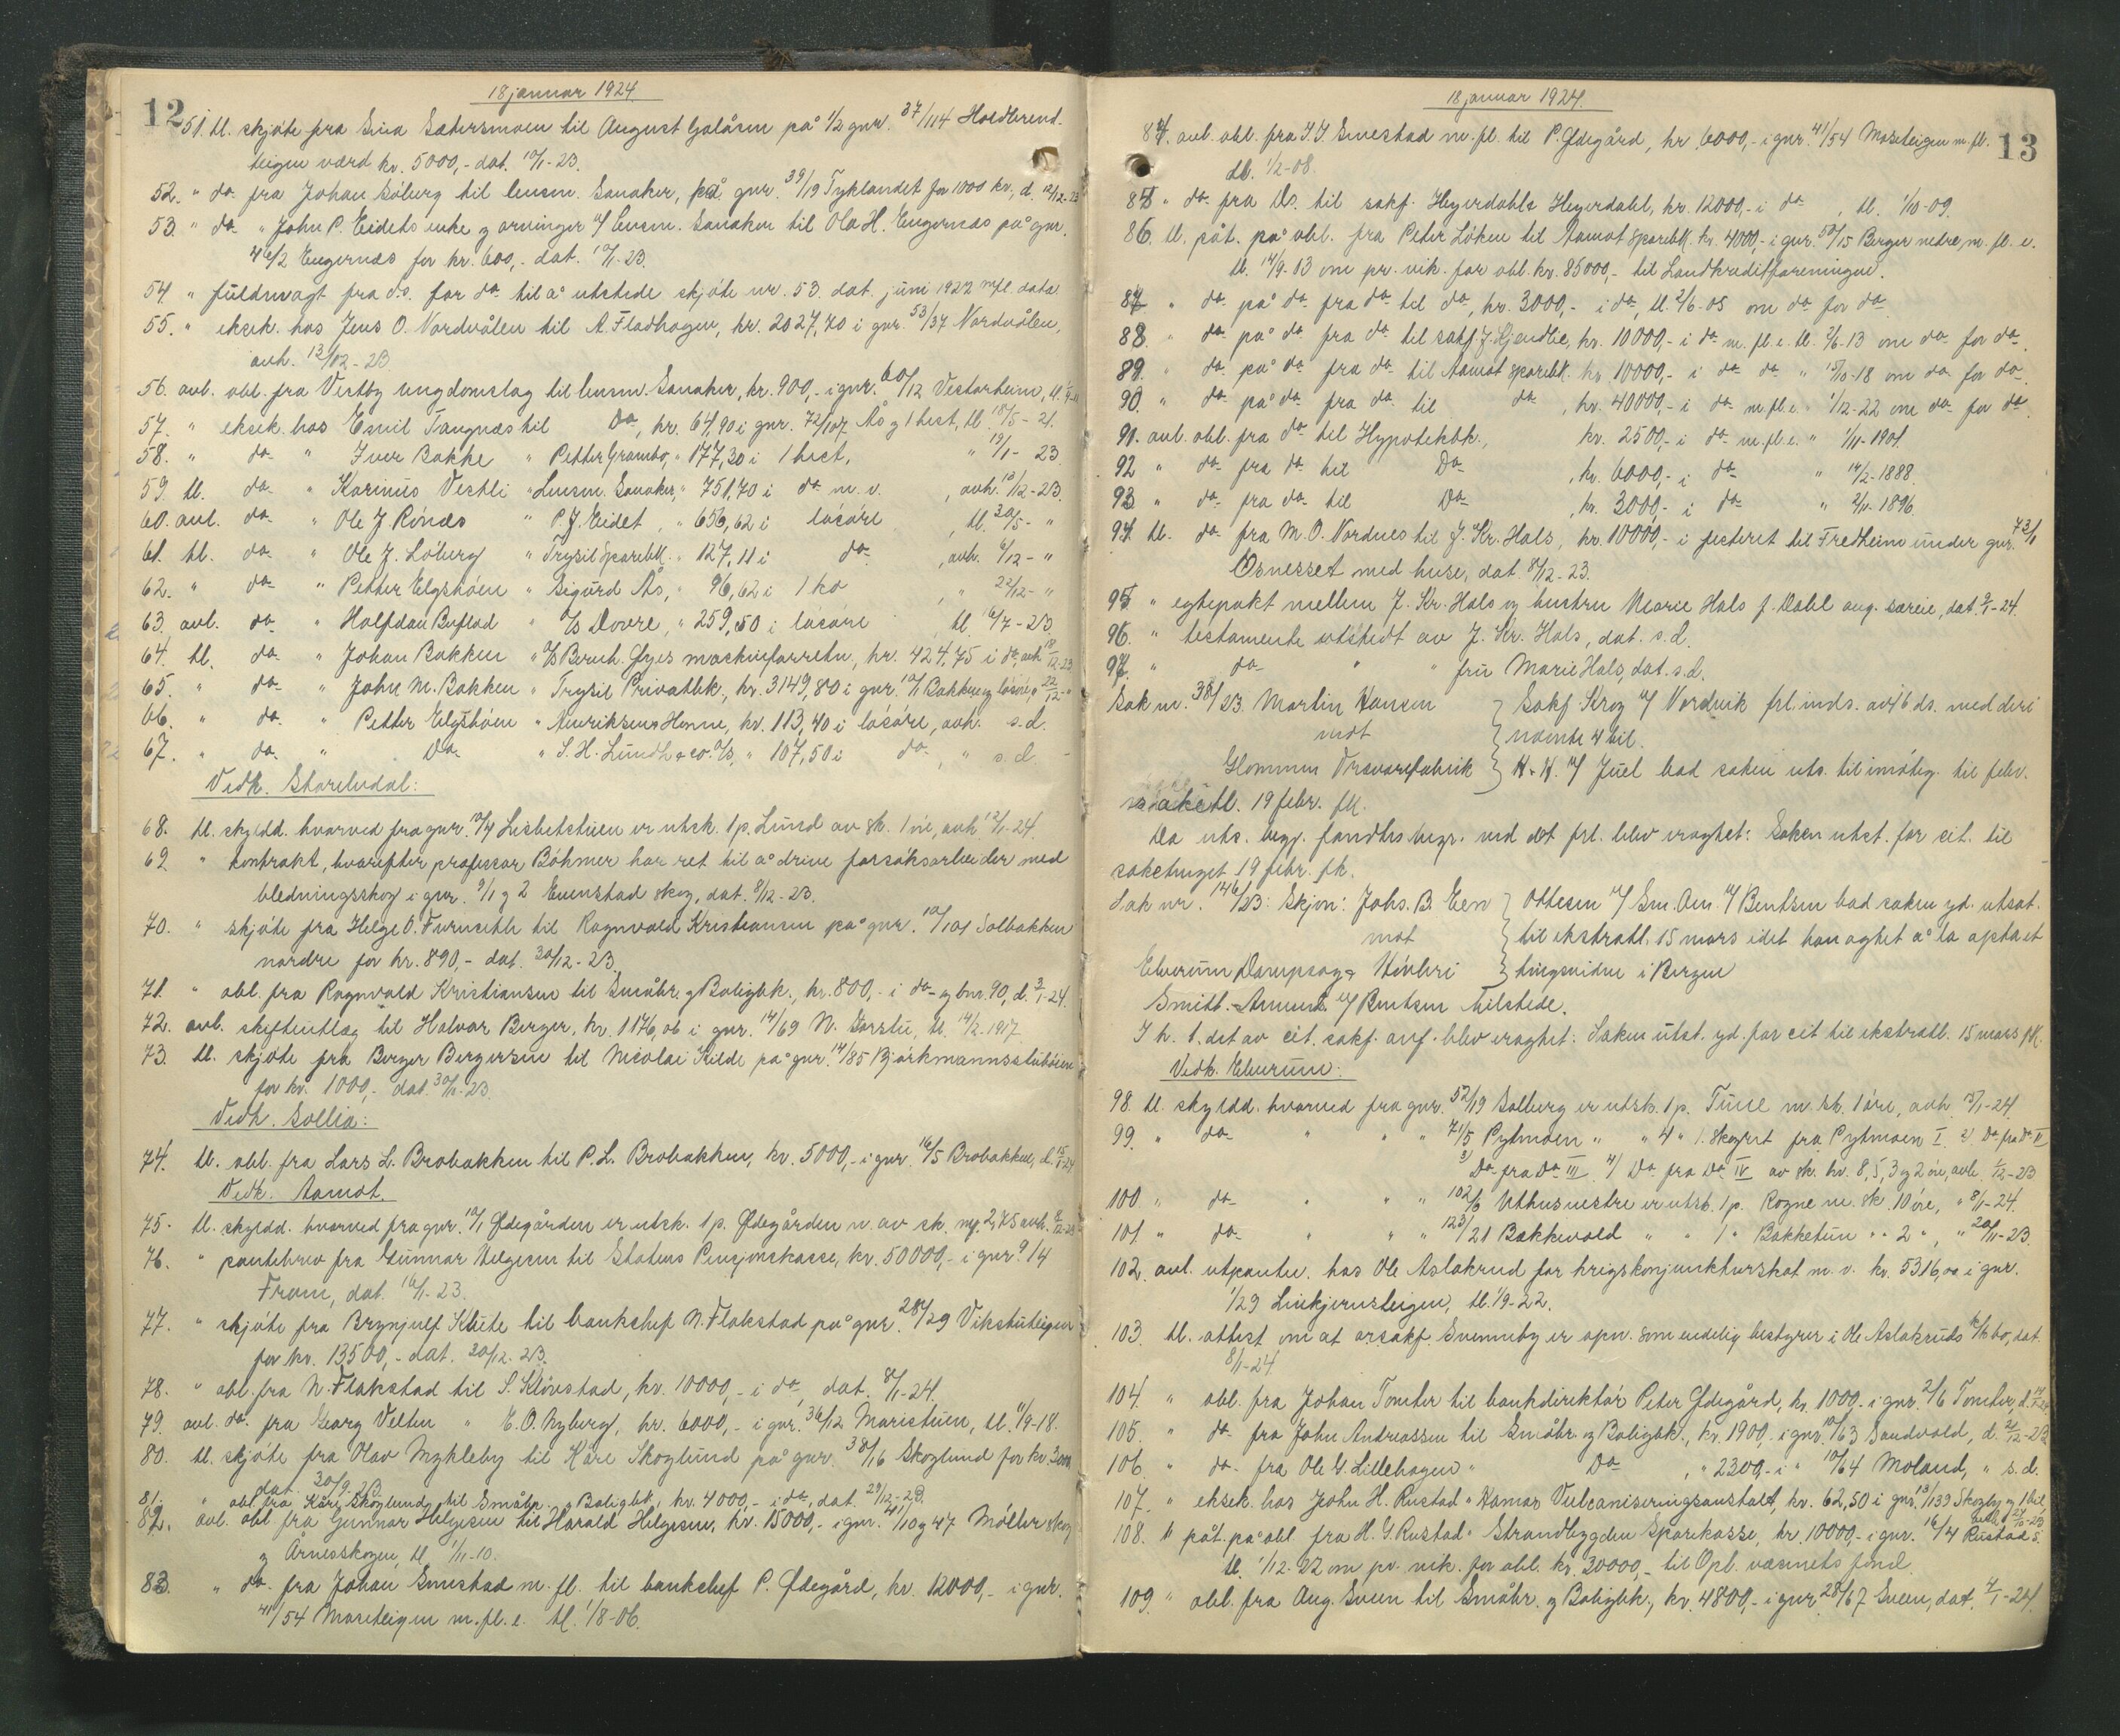 12
18 januar 1924.
51. tl. skjøte fra Sina Sætersmoen til August Galåsen på 1/2 gnr. 37/114 Holdbrend-
teigen værd kr. 5000,- dat. 10/1-23.
52. " do fra Johan Søberg til lensm. Sanaker, på gnr. 39/19 Tyklandet for 1000 kr, d. 12/12-23
53. " do " John P. Eidets enke og arvinger v/ lensm. Sanaker til Ola H. Engernæs på gnr.
46/2 Engernæs for kr. 600,- dat. 10/1-23.
54 " fuldmagt fra d.s. for do til å utstede skjøte nr. 53. dat. juni 1922 mfl. data.
55. " eksek. hos Jens O. Nordvålen til A. Fladhagen, kr. 2027,70 i gnr. 53/37 Nordvålen,
avh. 13/12-23
56. avl. obl. fra Vestby ungdomslag til lensm. Sanaker, kr. 900,- i gnr. 60/12 Vestarheim, tl.
57. " eksek. hos Emil Tangnæs til Do, kr. 64,90 i gnr. 72/107 Ås og 1 hest, tl. 18/5-21.
58. " do " Iver Bakke " Petter Grambo, " 177,30 i 1 hest, " 19/1-23
59. tl. do " Karinus Vestli " Lensm. Sanaker, " 751,70 i do m.v. , avh. 13/12-23.
60. avl. do " Ole J. Rønæs " P. J. Eidet, " 656,62 i løsøre , tl. 30/5- "
61. tl. do " Ole J. Løberg " Trysil Sparebk. " 127,11 i do , avh. 6/12- "
62. " do " Petter Elgshøen " Sigurd Ås, " 96,62 i 1 ko , " 22/12- "
63. avl. do " Halfdan Buflod " A/S Dovre, " 259,50 i løsøre , tl. 16/7-23
64. tl. do " Johan Bakken " A/S Bernh. Gjes maskinforretn, kr. 424,75 i do, avh 18/12-23
65. " do " John M. Bakken " Trysil Privatbk., kr. 3149,80 i gnr. 10/1 Bakken og løsøre, " 22/12- "
66. " do " Petter Elgshøen " Henriksens Henne, kr. 113,40 i løsøre, avh. s.d.
67. " do " Do " S. H. Lundh & co. A/S, " 107,50 i do , " s.d.
Vedk. Storelvdal:
68. tl. skyldd. hvorved fra gnr. 13/4 Lisbetstuen er utsk. 1 p. Lund av sk. 1 øre, avh 12/1-24.
69 " kontrakt, hvorefter professor Böhmer har ret til å drive forsøksarbeider med
bledningsskog i gnr. 9/1 og 2 Evenstad skog, dat. 8/12-23.
70. " skjøte fra Helge O. Furuseth til Ragnvald Kristiansen på gnr. 10/101 Solbakken
nordre for kr. 890,- dat. 20/12-23.
71. " obl. fra Ragnvald Kristiansen til Småbr. og Boligbk., kr. 800,- i do og bnr. 90, d. 3/1-24.
72. avl. skifteutlæg til Halvor Berger, kr. 1176,06 i gnr. 14/69 N. Jorstu, tl. 14/2-1917
73. tl. skjøte fra Berger Bergersen til Nicolai Kilde på gnr. 14/85 Bjørkmannsstubøien
for kr. 1000,- dat. 30/11-23.
Vedk. Sollia:
74. tl. obl. fra Lars L. Brobakken til P. L. Brobakken, kr. 5000,- i gnr. 16/5 Brobakken, d. 15/1-24
Vedk. Aamot.
75. tl. skyldd. hvorved fra gnr. 10/1 Ødegården er utsk. 1 p. Ødegården n. av sk. mg. 2,75 avh.
76. " pantebrev fra Gunnar Helgesen til Statens Pensjonskasse, kr. 50000,- i gnr. 9/4
Fram, dat. 16/1-23.
77. " skjøte fra Brynjulf Klüte til banksjef N. Flakstad på gnr. 28/29 Vikstuteigen
for kr. 13500,- dat. 20/12-23.
78. " obl. fra N. Flakstad til S. Kløvstad, kr. 10000,- i do, dat. 8/1-24.
79. avl. do. fra Georg Velten " E. O. Nyberg, kr. 6000,- i gnr. 36/12 Maristuen, tl. 11/9-18.
80. tl. skjøte fra Olav Mykleby til Kåre Skoglund på gnr. 38/16 Skoglund for kr. 3000
dat. 30/9-23.
81. " obl fra Kåre Skoglund til Småbr. og Boligbk., kr. 4000,- i do, dat. 29/12-23.
82. avl. obl fra Gunnar Helgesen til Harald Helgesen, kr. 15000,- i gnr. 41/10 og 47 Møller skog
og Årnesskogen, tl. 1/11-10.
83. " do. fra Johan Smestad m. fl. til banksjef P. Ødegård, kr. 12000,- i gnr.
41/54 Moseteigen m. fl. e. tl. 1/8-06.
13
18 januar 1924.
84. avl. obl. fra J. J. Smestad m. fl. til P. Ødegård, kr 6000,- i gnr. 41/54 Moseteigen m. fl.
tl. 1/2-08.
85 " do fra Ds. til sakf. Heyerdahls Heyerdahl, kr. 12000,- i do , tl. 1/10-09.
86. tl. påt. på obl. fra Peter Løken til Aamot Sparebk. kr. 4000,- i gnr. 50/15 Berger nedre, m. fl. e.
tl. 14/9-03 om pr. vik. for obl. kr. 85000,- til Landkreditforeningen.
87 " do på do fra do til do, kr. 3000,- i do, tl. 2/6-05 om do for do
88. " do på do fra do til sakf. J. Hjendlie, kr. 10000,- i do m. fl. e. tl. 2/6-13 om do for do.
89. " do på do fra do til Aamot Sparebk. kr. 10000,- i do do " 15/10-18 om do for do.
90. " do på do fra do til do , kr. 40000,- i do m. fl. e. " 1/12-22 om do for do
91. avl. obl. fra do til Hypotekbk., kr. 2500,- i do m. fl. e. " 1/11-1901.
92 " do fra do til Do , kr. 6000,- i do " 14/2-1888.
93 " do fra do til Do , kr. 3000,- i do " 2/11-1896.
94 tl. do fra M. O. Nordnes til J. Kr. Hals, kr. 10000,- i festeret til Fredheim under gnr. 73/1
Osnesset med huse, dat. 8/12-23.
95 " egtepakt mellem J. Kr. Hals og hustru Marie Hals f. Dahl ang. særeie, dat. 9/1-24.
96. " testamente utstedt av J. Kr. Hals, dat. s.d.
97. " do " " fru Marie Hals, dat. s.d.
Sak nr. 38/23. Martin Hansen } Sakf. Krog v/ Nordvik frl. inds. av 16 ds. med deri
mot } nævnte 4 bil.
Glommen Træsvarefabrik } H.-H. v/ Juel bad saken uts. til imøteg. til febr.
saketl. 19 febr. fk.
Da uts. begj. fandtes begr. ved det frl. blev eragtet: Saken utst. for cit. til
saketinget 19 febr. fk.
Sak nr. 146/23: Skjøn: Johs. B. Een } Ottesen v/ Sm. Am. v/ Bentsen bad saken yd. utsat.
mot } til ekstratl. 15 mars idet han agtet å la opta et
Elverum Dampsag & Høvleri } tingsvidne i Bergen
Smitt-Amundsen v/ Bentsen tilstede.
I h. t. det av cit. sakf. anf. blev eragtet: Saken utst. yd. for cit til ekstratl. 15 mars fk.
Vedk. Elverum:
98. tl. skyldd. hvorved fra gnr. 52/19 Solberg er utsk. 1 p. Tune m. sk. 1 øre, avh. 15/1-24.
99. " do " " " 71/5 Pytmoen " " 4 " 1. Skogset fra Pytmoen I 2) Do fra do II
3) Do fra do III 4) Do fra Do IV av sk. hv. 8,5,3 og 2 øre, avh. 1/12-23
100 " do " " " 102/6 Uthusvestre er utsk. 1 p. Rogne m. sk. 10 øre, " 8/1-24.
101. " do " " " 123/21 Bakkevold " " 1 " Bakketun " " 2 " , " 20/11-23.
102. avl. utpantn. hos Ole Aslakrud for krigskonjunkturskat m. v. kr. 5316,00 i gnr.
1/29 Linkjernsteigen, tl. 1/9-22.
103. tl. attest om at orsakf. Svenneby er opn. som endelig bestyrer i Ole Aslakruds k/k bo, dat.
8/1-24
104. " obl. fra Johan Tomter til bankdirektør Peter Ødegård, kr. 1000,- i gnr. 2/6 Tomter, d.
105. " do fra John Andreassen til Småbr. og Boligbk., kr. 1900,- i gnr. 10/63 Sandvold, d. 21/12-23
106. " do fra Ole G. Lillehagen " Do , " 2300,- i " 10/64 Moland, " s.d.
107. " eksek. hos John H. Rustad " Hamar Vulcaniseringsanstalt, kr. 62,50 i gnr. 13/139 Skogly og 1 bil,
108. tl påt. på obl. fra H. G. Rustad " Strandbygden Sparekasse, kr. 10000,- i gnr. 16/4 Rustad s.
tl. 1/12-22 om pr. vik. for obl. kr. 30000,- til Opl. væsenets fond.
109. " obl. fra Aug. Sveen til Småbr. og Boligbk., kr. 4800,- i gnr. 28/67 Sveen, dat. 4/1-24.